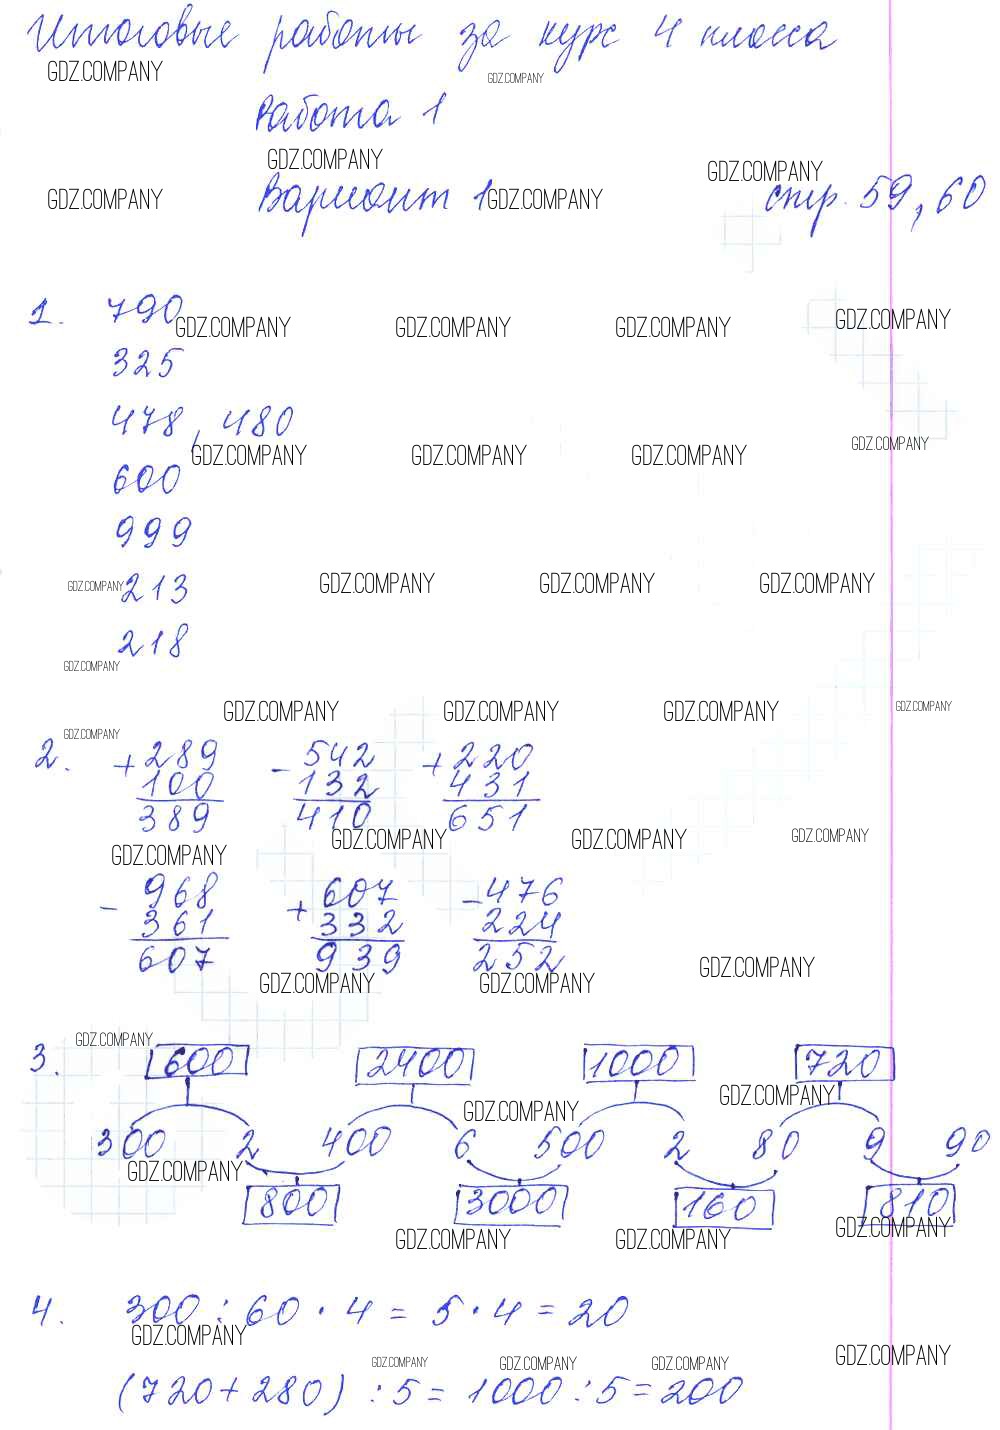 Итоговые работы за курс 4 класса
GDZ.COMPANY GDZ.COMPANY
Работа 1
GDZ.COMPANY GDZ.COMPANY
GDZ.COMPANY Вариант 1 GDZ.COMPANY стр. 59, 60
1. 790
GDZ.COMPANY GDZ.COMPANY GDZ.COMPANY GDZ.COMPANY
325
478, 480
GDZ.COMPANY GDZ.COMPANY GDZ.COMPANY GDZ.COMPANY
600
999
GDZ.COMPANY 213 GDZ.COMPANY GDZ.COMPANY GDZ.COMPANY
218
GDZ.COMPANY
GDZ.COMPANY GDZ.COMPANY GDZ.COMPANY GDZ.COMPANY
GDZ.COMPANY
2. + 289 - 542 + 220
100 132 431
389 410 651
GDZ.COMPANY GDZ.COMPANY GDZ.COMPANY GDZ.COMPANY
- 968 + 607 - 476
361 332 224
607 939 252
GDZ.COMPANY GDZ.COMPANY GDZ.COMPANY
GDZ.COMPANY
3. 600 2400 1000 720
GDZ.COMPANY GDZ.COMPANY
300 2 400 6 500 2 80 9 90
GDZ.COMPANY
800 3000 160 810
GDZ.COMPANY GDZ.COMPANY GDZ.COMPANY
4. 300 : 60 · 4 = 5 · 4 = 20
GDZ.COMPANY GDZ.COMPANY
GDZ.COMPANY GDZ.COMPANY GDZ.COMPANY
(720 + 280) : 5 = 1000 : 5 = 200